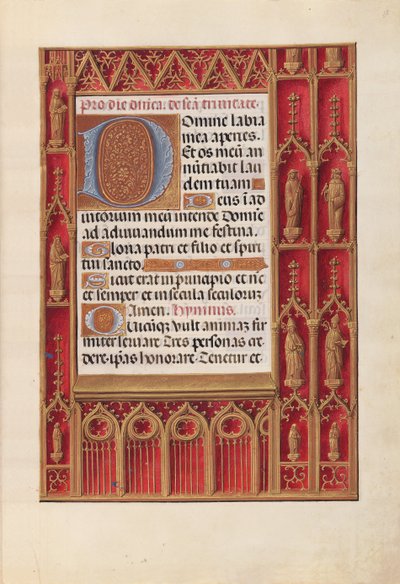 Pro die dnica. de scā trinitate.
Domine labia
mea aperies.
Et os meū an
nūtiabit lau
dem tuam
Deus ī ad
iutorium meū intende Domīe
ad adiuuandum me festina
Gloria patri et filio et spiri
tui sancto
Sicut erat in prīcipio et nūc
et semper et in secula seculorū
Amen. Hymnus.
Quicūqꝫ vult animaꝫ fir
miter seruare Tres personas cr
edere ipās honorare Tenetur et